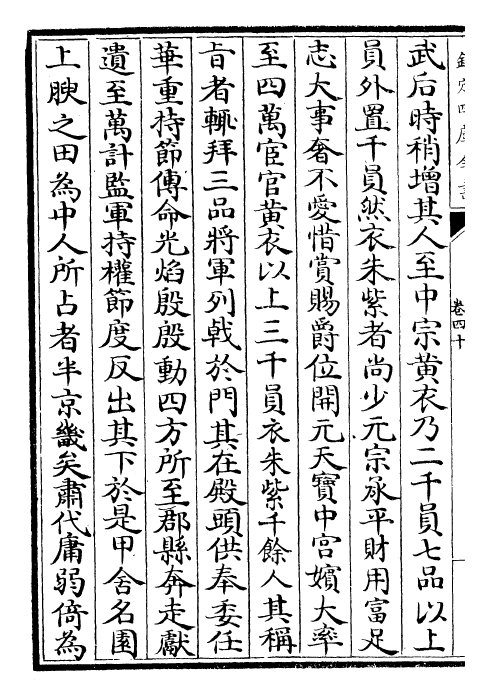 欽定四庫全書
卷四十
武后時稍增其人至中宗黃衣乃二千員七品以上
員外置千員然衣朱紫者尚少元宗承平財用富足
志大事奢不愛惜賞賜爵位開元天寶中宮嬪大率
至四萬宦官黃衣以上三千員衣朱紫千餘人其稱
旨者輒拜三品將軍列㦸於門其在殿頭供奉委任
華重持節傳命光焰殷殷動四方所至郡縣奔走獻
遺至萬計監軍持權節度反出其下於是甲舍名園
上腴之田為中人所占者半京畿矣肅代庸弱倚為